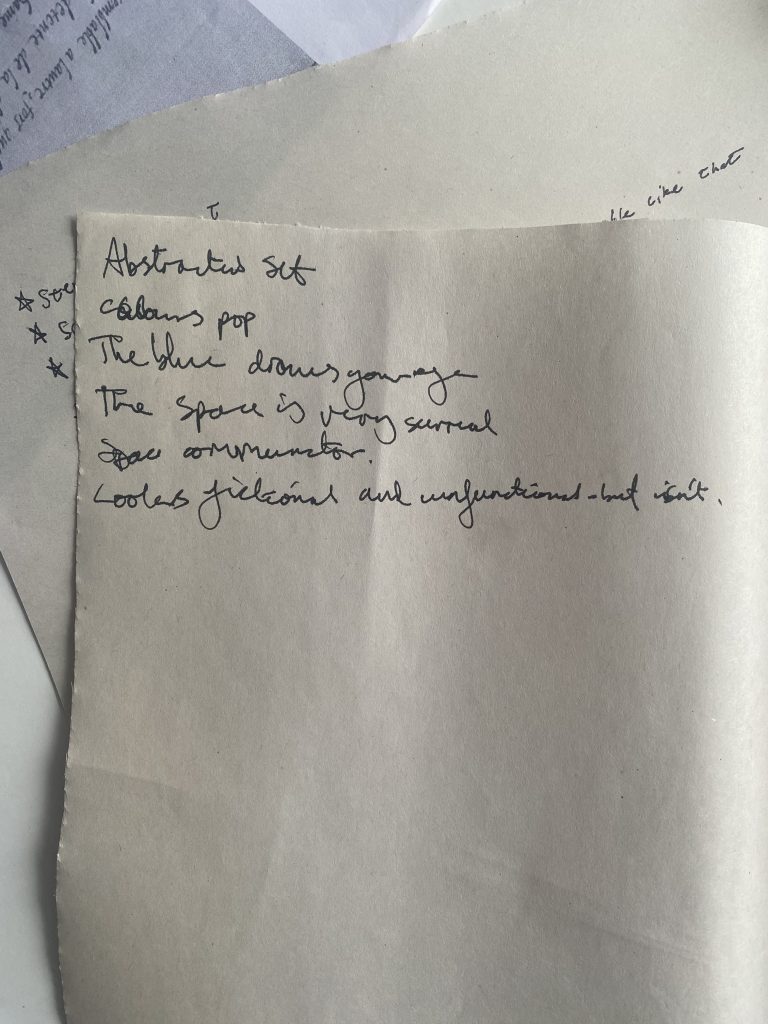 semblable a lauvre, fors que
descence de la
T
like that
Abstractus set
colours pop
The blue draws your eye
The space is very surreal
Space communicator.
Looks fictional and unfunctional - but isn't.